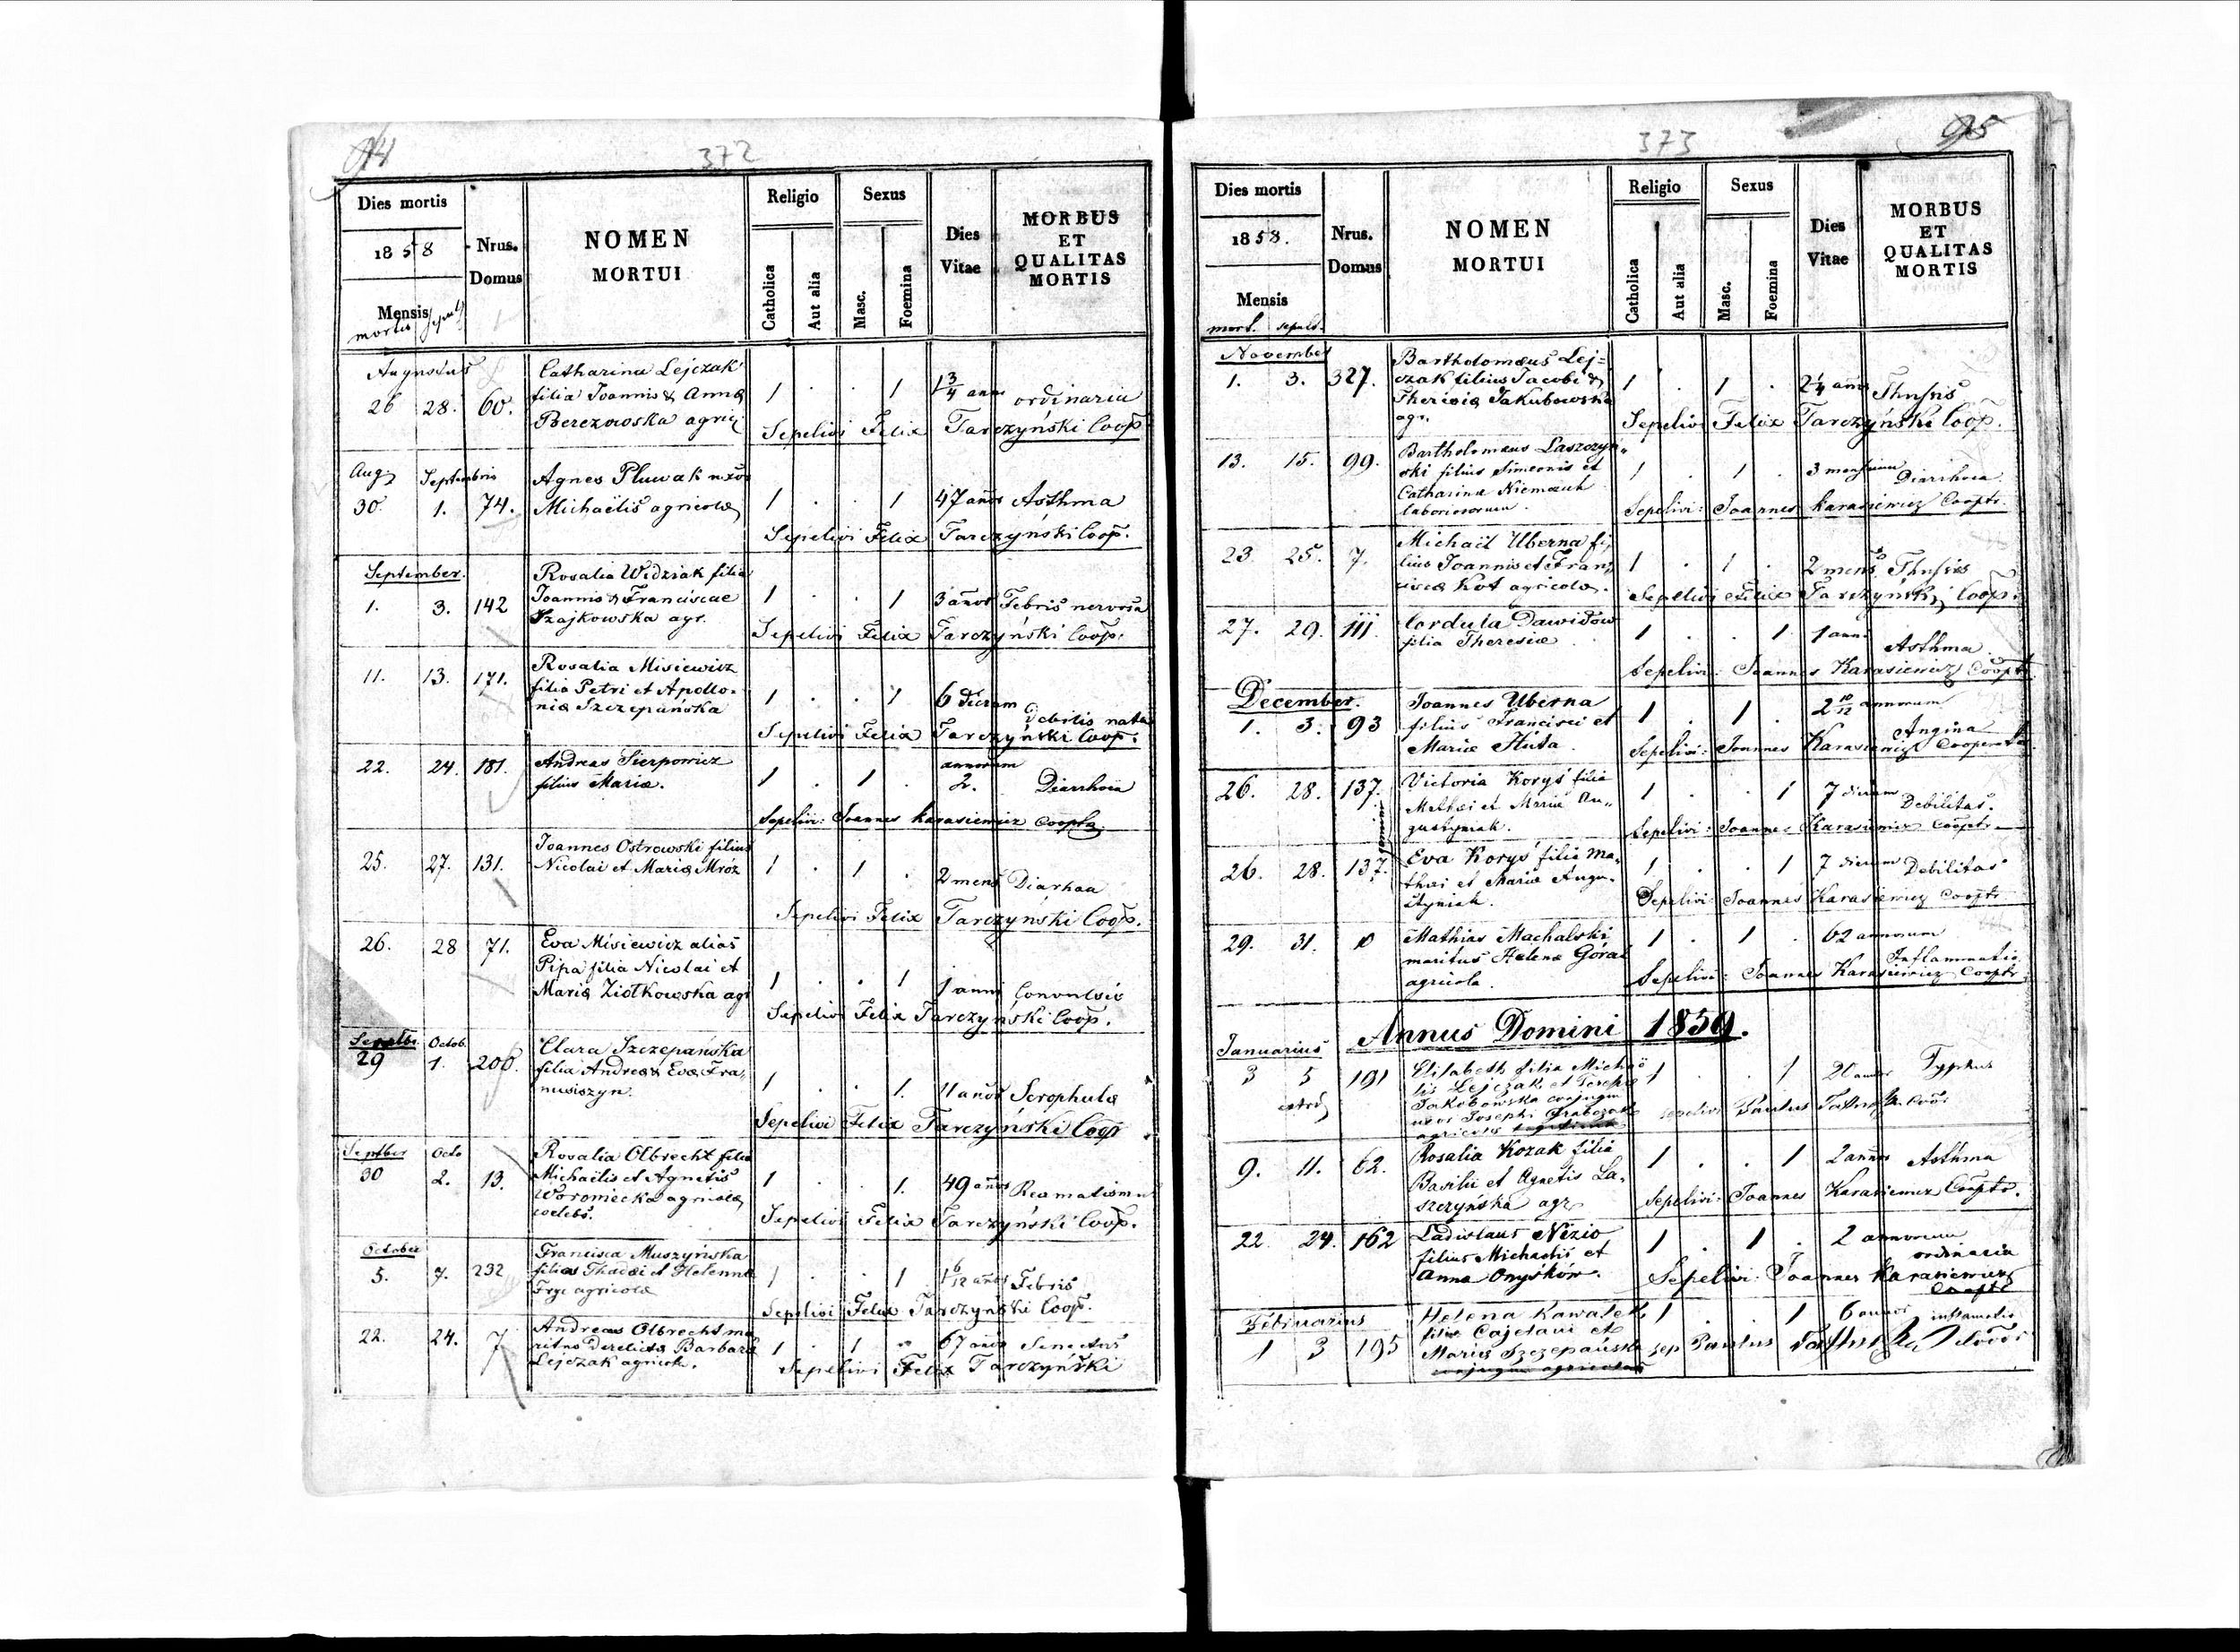 94
372
Dies mortis
1858
Mensis
mortis sepult
Nrus. Domus
NOMEN MORTUI
Religio
Catholica
Aut alia
Sexus
Masc.
Foemina
Dies Vitae
MORBUS ET QUALITAS MORTIS
Augustus
Catharina Lejczak
26 28. 60. filia Joannis & Annæ 1 . . 1 1 3/4 anni ordinaria
Berezowska agric
Sepelivi Felix Tarczyński Coop
Aug. Septembris
Agnes Pluwak uxor
30. 1. 74. Michaëlis agricolæ 1 . . 1 47 años Asthma
Sepelivi Felix Tarczyński Coop.
September.
Rosalia Widziak filia
1. 3. 142 Joannis & Franciscae 1 . . 1 3 años Febris nervosa
Szajkowska agr.
Sepelivi Felix Tarczyński Coop.
Rosalia Misiewicz
11. 13. 171. filia Petri et Apollo- 1 . . 1 6 dierum debilis nata
niæ Szczepańska
Sepelivi Felix Tarczyński Coop.
22. 24. 181. Andreas Sierpowicz 1 . 1 . annorum 2. Diarrhoia
filius Mariæ.
Sepelivi: Joannes Karasiewicz Coopta.
Joannes Ostrowski filius
25. 27. 131. Nicolai et Mariæ Mróz 1 . 1 . 2 mens Diarhaa
Sepelivi Felix Tarczyński Coop.
26. 28 71. Eva Misiewicz alias
Pipa filia Nicolai et
Mariæ Ziółkowska agr 1 . . 1 1 anni Convulsio
Sepelivi Felix Tarczyński Coop.
Septbr. Octob.
29 1. 200. Clara Szczepańska
filia Andreæ & Evæ Fra,
nusiszyn. 1 . . 1. 11 años Scrophulæ
Sepelivi Felix Tarczyński Coop
Septber Octo
30 2. 13. Rosalia Olbrecht filia
Michaëlis et Agnetis 1 . . 1. 49 años Reomatismus
Woroniecka agricolæ
coelebs.
Sepelivi Felix Tarczyński Coop.
October
5. 7. 232 Francisca Muszyńska
filia Thadæi et Helenna 1 . . 1 1 6/12 años Febris
Fryc agricolæ
Sepelivi Felix Tarczyński Coop.
22. 24. 7 Andreas Olbrecht ma
ritus derelictæ Barbara 1 . 1 . 67 años Senectus
Lejczak agricol.
Sepelivi Felix Tarczyński
95
373
Dies mortis
1858.
Mensis
mort. sepult.
Nrus. Domus
NOMEN MORTUI
Religio
Catholica
Aut alia
Sexus
Masc.
Foemina
Dies Vitae
MORBUS ET QUALITAS MORTIS
November
Bartholomæus Lej=
1. 3. 327. czak filius Jacobi & 1 . 1 . 2 1/4 años Thysis
Theresiæ Jakubowska
agr.
Sepelivi Felix Tarczyński Coop.
Bartholomæus Laszczyń„
13. 15. 99. ski filius Simeonis et 1 . 1 . 3 mensium Diarrhoea
Catharinæ Niemczuk
laboriosorum.
Sepelivi: Joannes Karasiewicz Cooptr.
Michaël Uberna fi,
23. 25. 7. lius Joannis et Fran„ 1 . 1 . 2 mens. Thysis
ciscæ Kot agricolæ.
Sepelivi Felix Tarczyński Coop.
27. 29. 111. Cordula Dawidow 1 . . 1 1 anni Asthma.
filia Theresiæ
Sepelivi: Joannes Karasiewicz Cooptr.
December.
1. 3. 93 Joannes Uberna
filius Francisci et 1 . 1 . 2 10/12 annorum Angina
Mariæ Huta.
Sepelivi: Joannes Karasiewicz Cooperator.
26. 28. 137. Victoria Koryś filia 1 . . 1 7 dierum Debilitas.
Mathæi et Mariæ Au„
gustyniak.
Sepelivi: Joannes Karasiewicz Cooptr.
gemini
26. 28. 137. Eva Koryś filia Ma„ 1 . . 1 7 dierum Debilitas
thæi et Mariæ Augu„
styniak.
Sepelivi: Joannes Karasiewicz Cooptr
29. 31. 10 Mathias Machalski 1 . 1 . 62 annorum Inflammatio
maritus Helenæ Góral
agricola.
Sepelivi: Joannes Karasiewicz Cooptr
Annus Domini 1859.
Januarius
3 5 191 Elisabeth filia Michaë
lis Lejczak et Teresiæ 1 . . 1 20 annor Typhus
Jakobowska conjugum
uxor Josephi Grabczak
agricolæ
sepelivi Paulus
9. 11. 62. Rosalia Kozak filia 1 . . 1 2 annos Asthma
Basilii et Agnetis La„
szczyńska agr.
Sepelivi: Joannes Karasiewicz Cooptr.
22. 24. 162 Ladislaus Nizio 1 . 1 . 2 annorum ordinaria
filius Michaëlis et
Anna Onyśków.
Sepelivi: Joannes Karasiewicz
Cooptr
Februarius
1 3 195 Helena Kawałek 1 . . 1 6 annor inflamatio
filia Cajetani et
Mariæ Szczepańska
conjugum agricolarum
sep Paulus